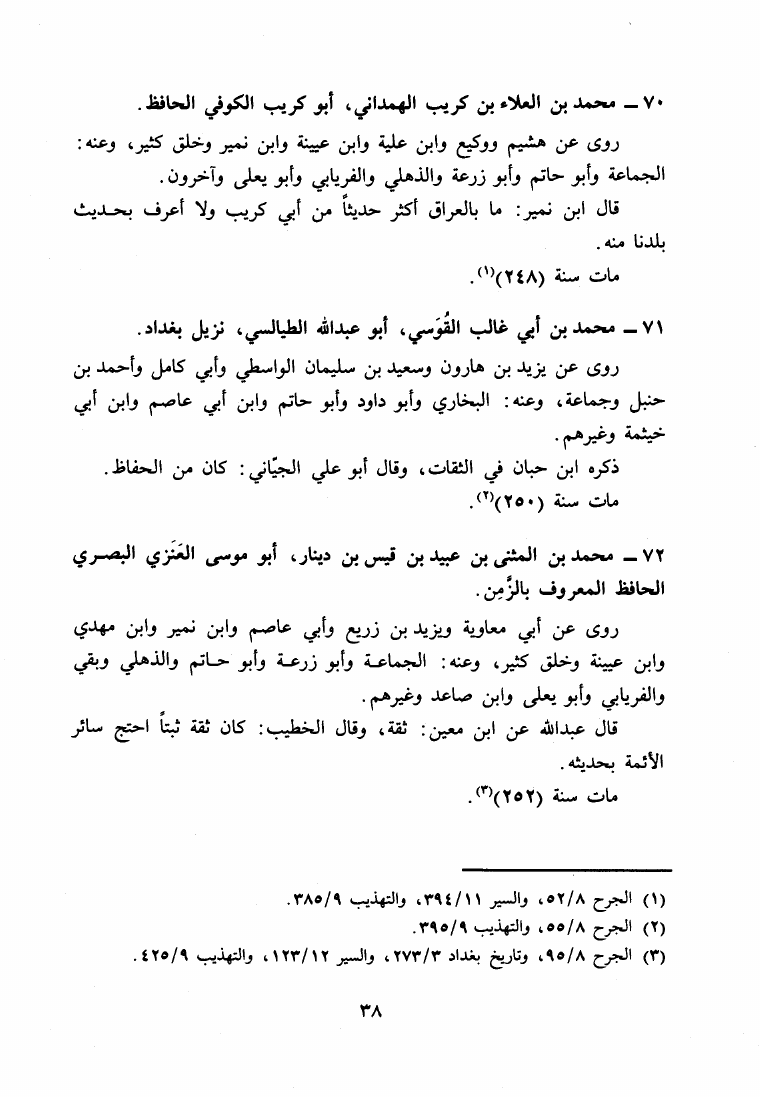 ٧٠ ـ محمد بن العلاء بن كريب الهمداني، أبو كريب الكوفي الحافظ.
روى عن هشيم ووكيع وابن علية وابن عيينة وابن نمير وخلق كثير، وعنه:
الجماعة وأبو حاتم وأبو زرعة والذهلي والفريابي وأبو يعلى وآخرون.
قال ابن نمير: ما بالعراق أكثر حديثاً من أبي كريب ولا أعرف بحديث
بلدنا منه.
مات سنة (٢٤٨)(١).
٧١ ـ محمد بن أبي غالب القُوَسي، أبو عبدالله الطيالسي، نزيل بغداد.
روى عن يزيد بن هارون وسعيد بن سليمان الواسطي وأبي كامل وأحمد بن
حنبل وجماعة، وعنه: البخاري وأبو داود وأبو حاتم وابن أبي عاصم وابن أبي
خيثمة وغيرهم.
ذكره ابن حبان في الثقات، وقال أبو علي الجيّاني: كان من الحفاظ.
مات سنة (٢٥٠)(٢).
٧٢ ـ محمد بن المثنى بن عبيد بن قيس بن دينار، أبو موسى العَنَزي البصري
الحافظ المعروف بالزَّمِن.
روى عن أبي معاوية ويزيد بن زريع وأبي عاصم وابن نمير وابن مهدي
وابن عيينة وخلق كثير، وعنه: الجماعة وأبو زرعة وأبو حاتم والذهلي وبقي
والفريابي وأبو يعلى وابن صاعد وغيرهم.
قال عبدالله عن ابن معين: ثقة، وقال الخطيب: كان ثقة ثبتاً احتج سائر
الأئمة بحديثه.
مات سنة (٢٥٢)(٣).
(١) الجرح ٥٢/٨، والسير ٣٩٤/١١، والتهذيب ٣٨٥/٩.
(٢) الجرح ٥٥/٨، والتهذيب ٣٩٥/٩.
(٣) الجرح ٩٥/٨، وتاريخ بغداد ٢٧٣/٣، والسير ١٢٣/١٢، والتهذيب ٤٢٥/٩.
٣٨